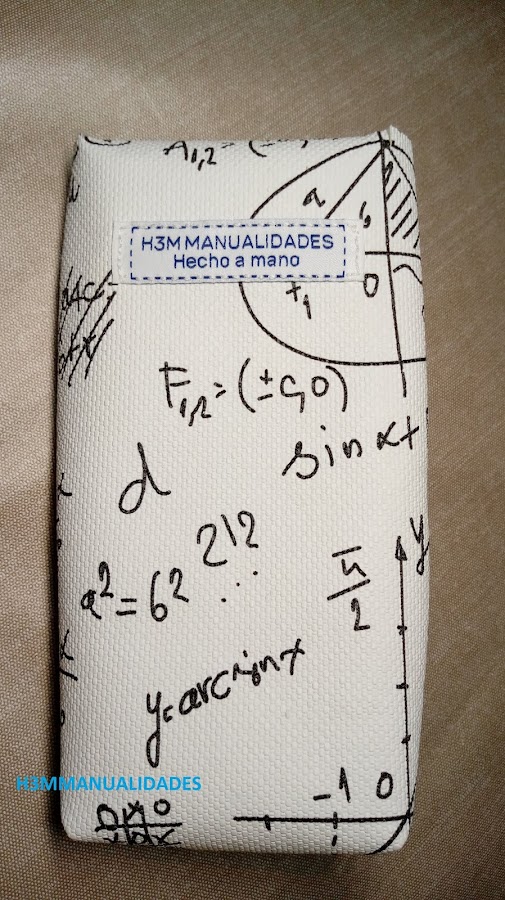 A₁,₂=(
a
b
H3M MANUALIDADES
Hecho a mano
0
F₁,₂=(±c,0)
sin x+
d
212
a²=6²
...
π/2
y
y=arcsin x
H3MMANUALIDADES
-1 0